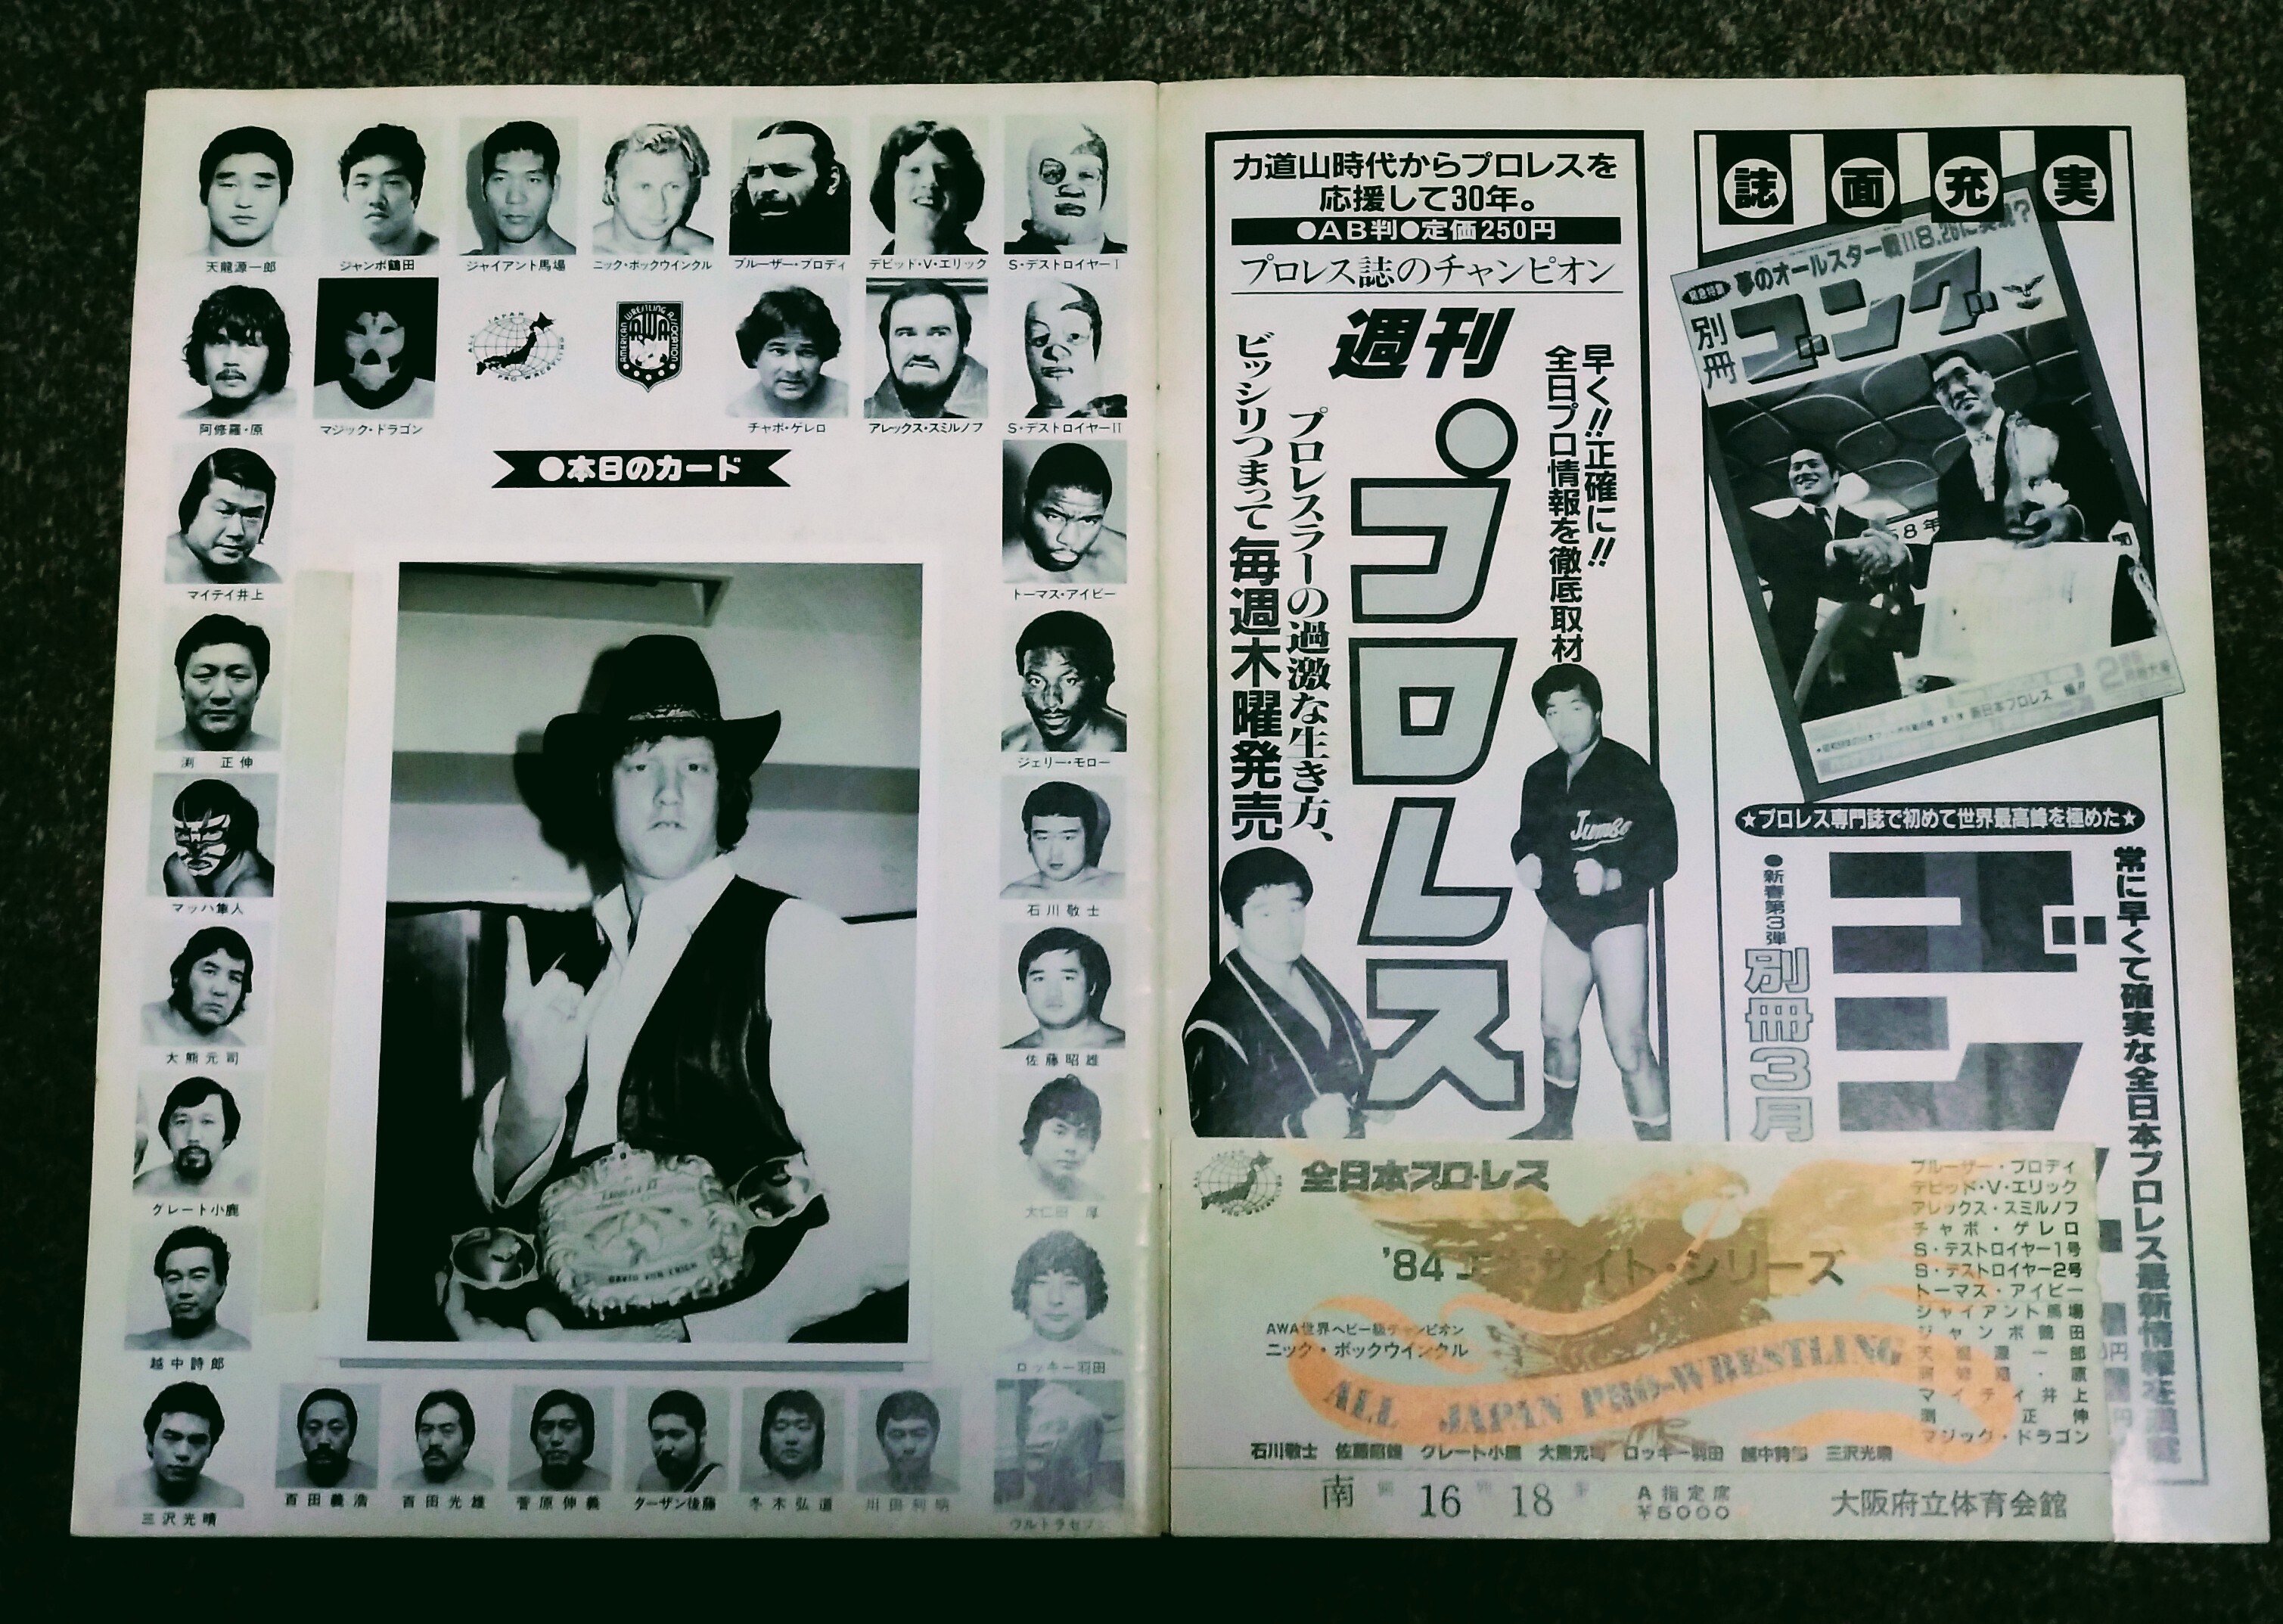 天龍源一郎
ジャンボ鶴田
ジャイアント馬場
ニック・ボックウインクル
ブルーザー・ブロディ
デビッド・V・エリック
S・デストロイヤーI
阿修羅・原
マジック・ドラゴン
ALL JAPAN PRO WRESTLING
AMERICAN WRESTLING ASSOCIATION
AWA
チャボ・ゲレロ
アレックス・スミルノフ
S・デストロイヤーII
●本日のカード
マイテイ井上
トーマス・アイビー
渕 正伸
ジェリー・モロー
マッハ隼人
石川敬士
大熊元司
佐藤昭雄
グレート小鹿
大仁田 厚
越中詩郎
ロッキー羽田
三沢光晴
百田義浩
百田光雄
菅原伸義
ターザン後藤
冬木弘道
川田利明
ウルトラセブン
DAVID VON ERICH
力道山時代からプロレスを
応援して30年。
●AB判●定価250円
プロレス誌のチャンピオン
週刊
プロレス
早く!!正確に!!
全日プロ情報を徹底取材
プロレスラーの過激な生き方、
ビッシリつまって毎週木曜発売
Jumbo
誌面充実
夢のオールスター戦!!8.26に実現?
別冊
ゴング
58年
新日本プロレス
★プロレス専門誌で初めて世界最高峰を極めた★
常に早くて確実な全日本プロレス最新情報を満載
●新春第3弾
別冊3月
ゴン
全日本プロ・レス
'84
サイト・シリーズ
AWA世界ヘビー級チャンピオン
ニック・ボックウインクル
ALL JAPAN PRO-WRESTLING
ブルーザー・ブロディ
デビッド・V・エリック
アレックス・スミルノフ
チャボ・ゲレロ
S・デストロイヤー1号
S・デストロイヤー2号
トーマス・アイビー
ジャイアント馬場
ジャンボ鶴田
天龍源一郎
阿修羅・原
マイティ井上
渕 正伸
マジック・ドラゴン
石川敬士 佐藤昭雄 グレート小鹿 大熊元司 ロッキー羽田 越中詩郎 三沢光晴
南 16 18
A指定席
¥5000
大阪府立体育会館